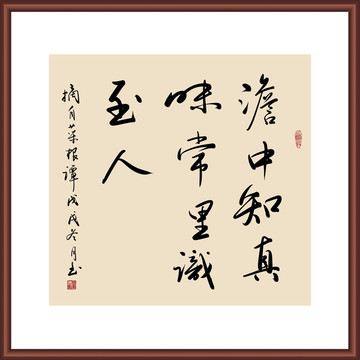 澹中知真
味常里識
至人
摘自菜根譚戊戌冬月玉